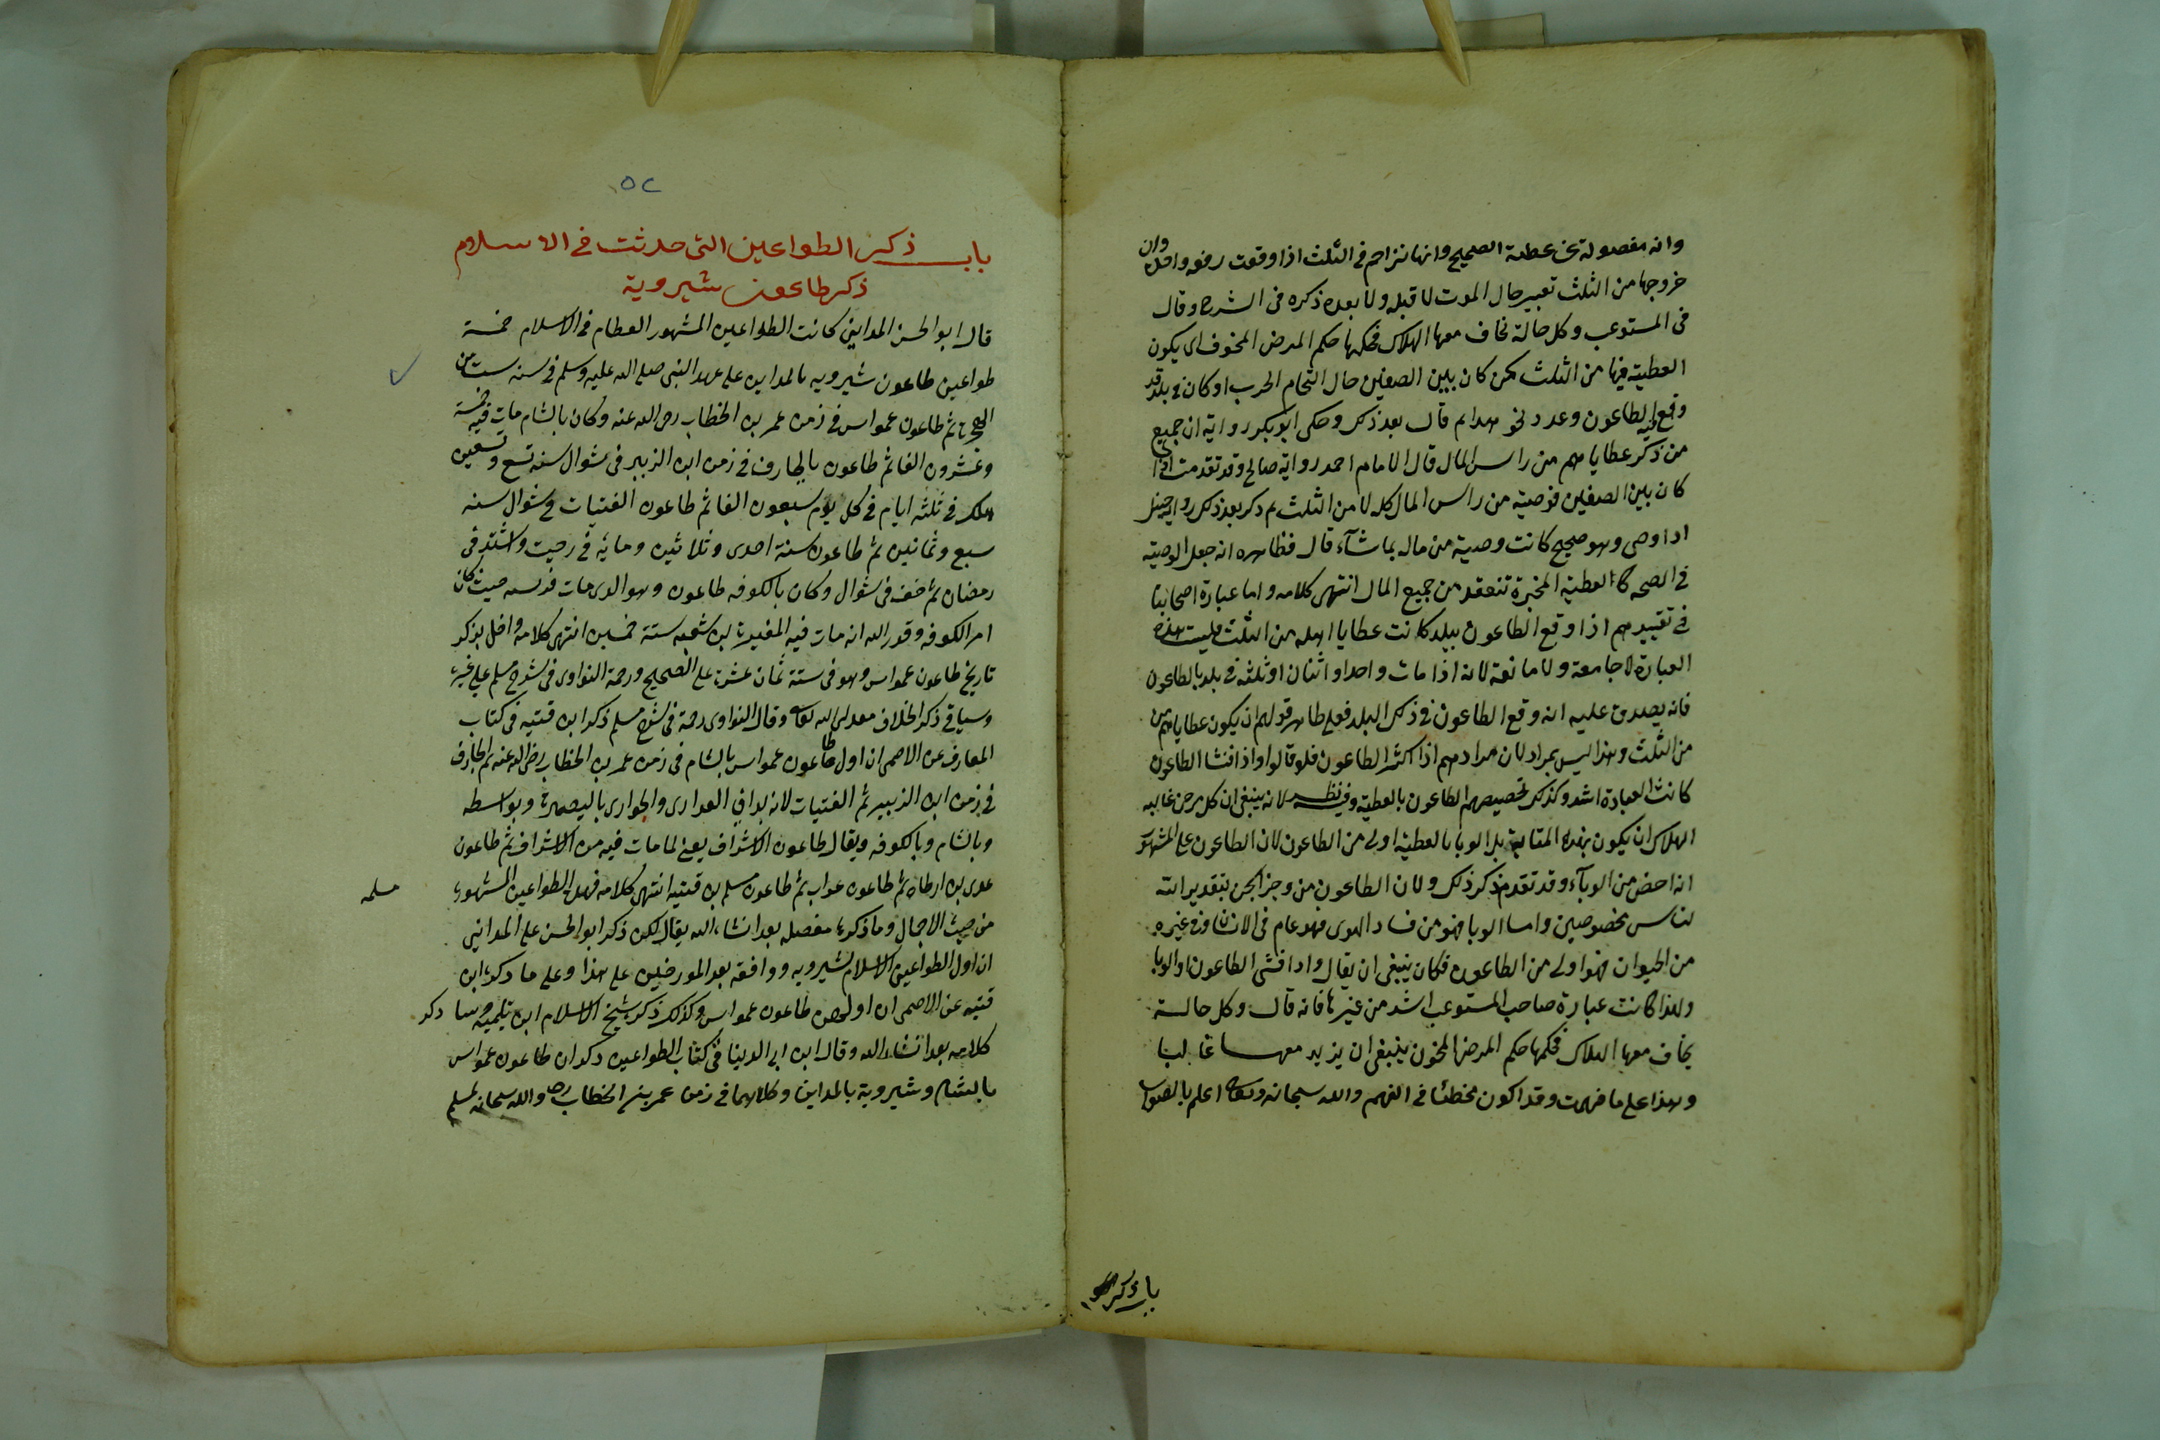 وانه مفصولة عن عطية الصحيح وانها تزاحم فى الثلث اذا وقعت دفعه واحدة وان
خروجها من الثلث تعتبر حال الموت لا قبله ولا بعده ذكره فى الشرح وقال
فى المستوعب وكل حالة تخاف معها الهلاك فحكمها حكم المرض المخوف اى يكون
العطية فيها من الثلث كمن كان بين الصفين حال التحام الحرب او كان فى بلد قد
وقع فيه الطاعون وعدد نحو هذا ثم قال بعد ذلك وحكى ابو بكر رواية ان جميع
من ذكر عطاياهم من راس المال قال الامام احمد رواية صالح وقد تقدمت اذا
كان بين الصفين فوصيته من راس المال كله لا من الثلث ثم ذكر بعد ذلك رواية حنبل
اذا وصى وهو صحيح كانت وصية من ماله بما شآء قال فظاهره انه جعل الوصية
فى الصحه كا العطية المنجزة تنعقد من جميع المال انتهى كلامه واما عبارة اصحابنا
فى تقييدهم اذا وقع الطاعون ببلد كانت عطايا اهله من الثلث فليست هذه
العبارة لا جامعة ولا مانعة لانه اذا مات واحد او اثنان او ثلثة فى بلد بالطاعون
فانه يصدق عليه انه وقع الطاعون فى ذلك البلد فعلى ظاهر قولهم ان يكون عطاياهم من
من الثلث وهذا ليس بمراد لان مرادهم اذا اكثر الطاعون فلو قالوا واذا فشا الطاعون
كانت العبادة اشد وكذلك تخصيصهم الطاعون بالعطية وفيه نظر لانه ينبغى ان كل مرض غالبه
الهلاك ان يكون بهذه المثابة بل الوبا بالعطية اولى من الطاعون لان الطاعون على المشهور
انه اخص من الوبآء وقد تقدم ذكر ذلك ولان الطاعون من وخز الجن بتقدير الله
لناس مخصوصين واما الوبا فهو من فساد الهوى فهو عام فى الانسان وفى غيره
من الحيوان فهو اولى من الطاعون فكان ينبغى ان يقال واذا فشى الطاعون او الوبا
ولهذا كانت عبارة صاحب المستوعب اشد من غيرها فانه قال وكل حالة
يخاف معها الهلاك فحكمها حكم المرض المخوف ينبغى ان يزيد معها غالبا
وهذا على ما فهمت وقد اكون مخطئا فى الفهم والله سبحانه وتعالى اعلم بالصواب
باب ذكر
٥٢
باب ذكر الطواعين التى حدثت فى الاسلام
ذكر طاعون شيروية
قال ابو الحسن المداينى كانت الطواعين المشهور العظام فى الاسلام خمسة
طواعين طاعون شيرويه بالمداين على عهد النبى صلى الله عليه وسلم فى سنه ست من
الهجرة ثم طاعون عمواس فى زمن عمر بن الخطاب رضى الله عنه وكان بالشام مات فيه خمسة
وعشرون الفا ثم طاعون بالجارف فى زمن ابن الزبير فى شوال سنه تسع وتسعين
هلك فى ثلثه ايام فى كل يوم سبعون الفا ثم طاعون الفتيات فى شوال سنه
سبع وثمانين ثم طاعون سنة احدى وثلاثين ومايه فى رجب واشتد فى
رمضان ثم خف فى شوال وكان بالكوفه طاعون وهو الذى مات فيه حيث كان
امر الكوفه وقدر الله انه مات فيه المغيرة بن شعبه سنة خمسين انتهى كلامه واخل بذكر
تاريخ طاعون عمواس وهو فى سنة ثمان عشرة على الصحيح ورحمة النواوى فى شرح مسلم على غيره
وسياتى ذكر الخلاف بعد ان الله تعالى وقال النواوى رحمة فى شرح مسلم ذكر ابن قتيبه فى كتاب
المعارف عن الاصمعى ان اول طاعون عمواس بالشام فى زمن عمر بن الخطاب رضى الله عنه ثم الجارف
فى زمن ابن الزبير ثم الفتيات لانه بدا فى العذارى والجوارى بالبصرة وبواسطه
وبالشام وبالكوفه ويقال طاعون الاشراف يعنى لما مات فيه من الاشراف ثم طاعون
عدى بن ارطاة ثم طاعون غراب ثم طاعون مسلم بن قتيبه انتهى كلامه فهذه الطواعين المشهورة
مسلمه
من حيث الاجمال وما ذكرها مفصله بعد انشا الله يقال لكن ذكر ابو الحسن على المداينى
ان اول الطواعين الاسلام شيرويه ووافقه بعد المورخين على هذا وعلى ما ذكره ابن
قتيبه عن الاصمعى ان اولهن طاعون عمواس وكذلك ذكر شيخ الاسلام ابن تيمية وسا ذكر
كلامه بعد انشاء الله وقال ابن ابى الدنيا فى كتاب الطواعين ذكر ان طاعون عمواس
بالشام وشيروية بالمداين وكلاهما فى زمن عمر بن الخطاب رضه والله سبحانه